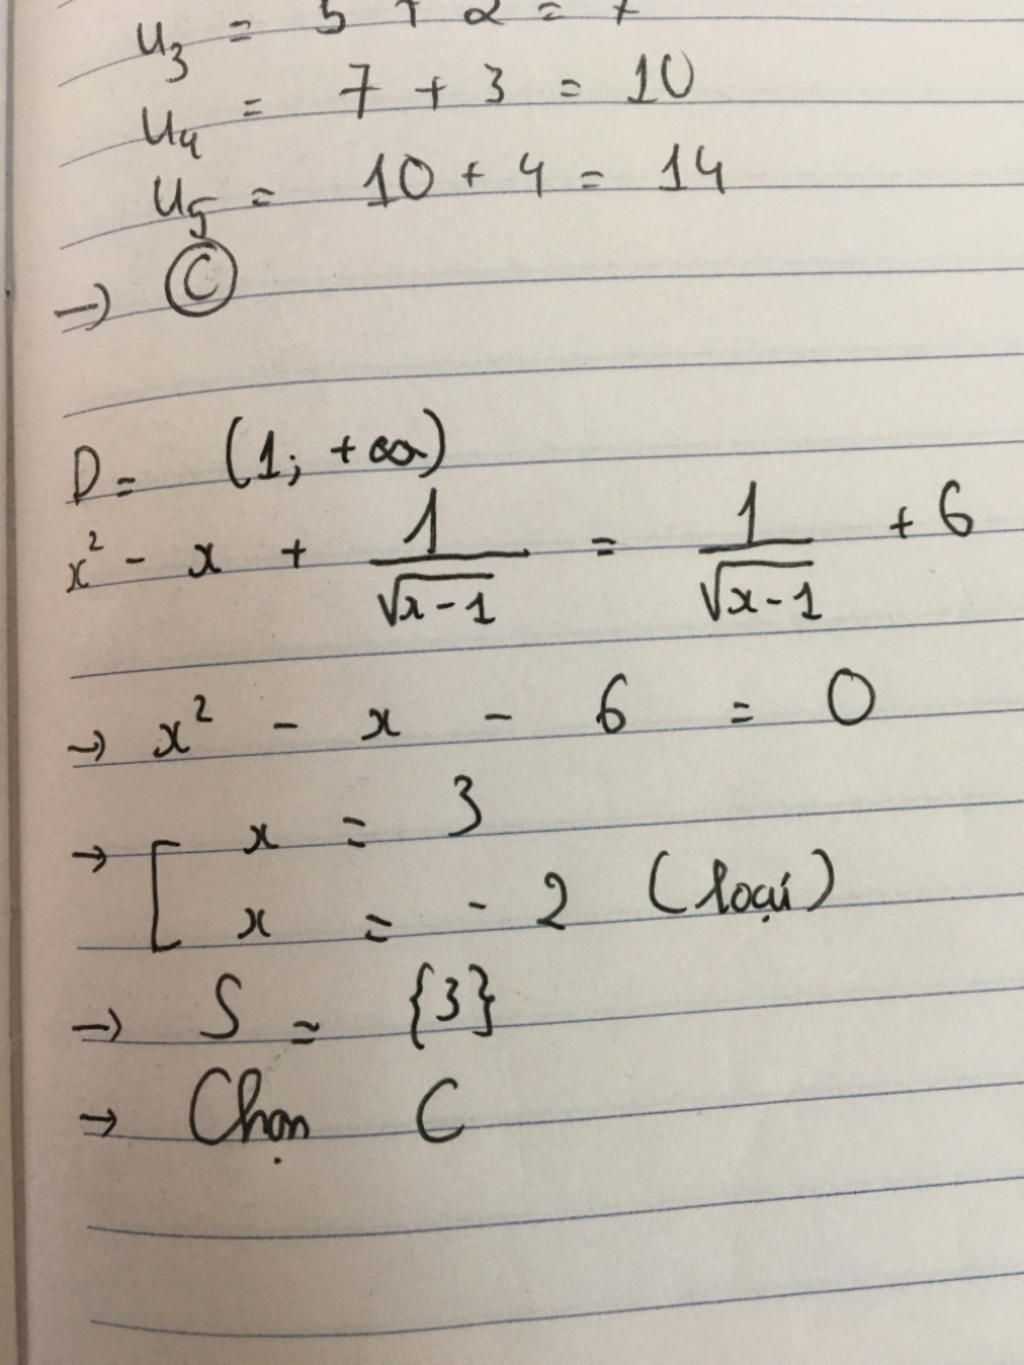 u₃ = 5 + 2 = 7
u₄ = 7 + 3 = 10
u₅ = 10 + 4 = 14
→ Ⓒ
D = (1; +∞)
x² - x + 1/√(x-1) = 1/√(x-1) + 6
→ x² - x - 6 = 0
→ [ x = 3
x = -2 (loại)
→ S = {3}
→ Chọn C